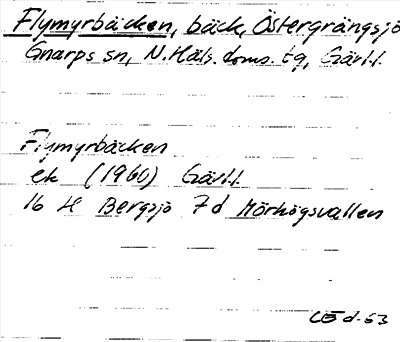 Flymyrbäcken, bäck, Östergrängsjö
Gnarps sn, N.Häls. doms. tg, Gävl.l.
Flymyrbäcken
ek (1960) Gävl.l.
16 H Bergsjö 7d Mörhögsvallen
d-53